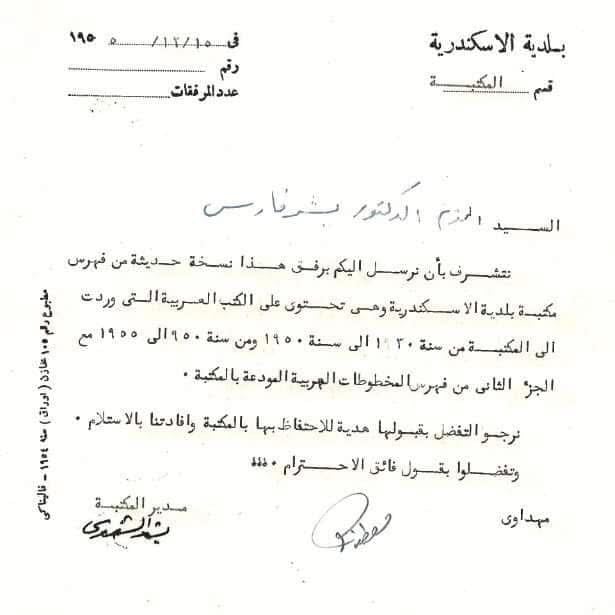 بلدية الاسكندرية
قسم المكتبــة
فى ١٥/١٢/ ١٩٥٥
رقم
عدد المرفقات
السيد المحترم الدكتور بشر فارس
نتشرف بأن نرسل اليكم برفق هذا نسخة حديثة من فهرس
مكتبة بلدية الاسكندرية وهى تحتوى على الكتب العربية التى وردت
الى المكتبة من سنة ١٩٣٠ الى سنة ١٩٥٠ ومن سنة ٩٥٠ الى ١٩٥٥ مع
الجزء الثانى من فهرس المخطوطات العربية المودعة بالمكتبة ٠
نرجو التفضل بقبولها هدية للاحتفاظ بها بالمكتبة وافادتنا بالاستلام ٠
وتفضلوا بقبول فائق الاحترام ٠
مدير المكتبة
مهداوى
مطبوع رقم ١٠٥ مخازن ( اوراق ) سنه ١٩٥٤ –